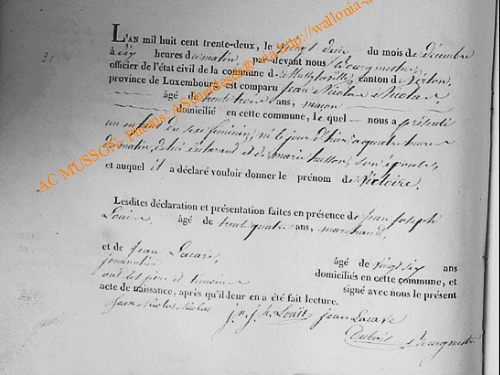 L'AN mil huit cent trente-deux, le vingt deux du mois de décembre
à dix heures du matin par-devant nous Bourgmestre
officier de l'état civil de la commune de canton de
province de Luxembourg est comparu Jean Nicolas Nicolas
âgé de trente trois ans, maçon
domicilié en cette commune, le quel nous a présenté
un enfant du sexe féminin, né le jour d'hier à quatre heures
du matin, de lui déclarant et de Marie son épouse
et auquel il a déclaré vouloir donner le prénom de Victoire.
Lesdites déclaration et présentation faites en présence de Jean Joseph
Louis âgé de trente quatre ans, marchand,
et de Jean Lacave âgé de vingt six ans
journalier domiciliés en cette commune, et
ont les père et témoins signé avec nous le présent
acte de naissance, après qu'il leur en a été fait lecture.
Jean Nicolas Nicolas J. n. J. h. Louis Jean Lacave
Dubois Bourgmestre
31
AC MUSSON- Photos http://wallonia-a